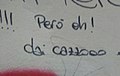 !!! Però oh!
dai cazzooo...